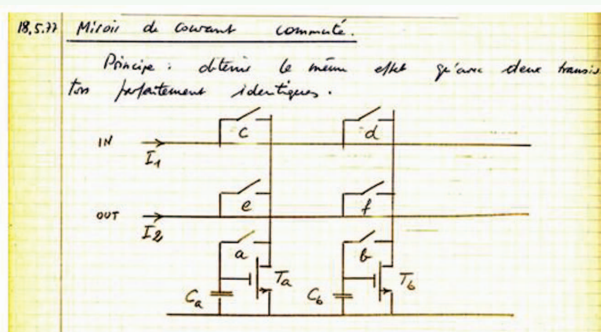 18.5.77 Miroir de courant commuté.
Principe : obtenir le même effet qu'avec deux transis
tors parfaitement identiques.
c d
IN
I1
e f
OUT
I2
a b
Ta Tb
Ca Cb